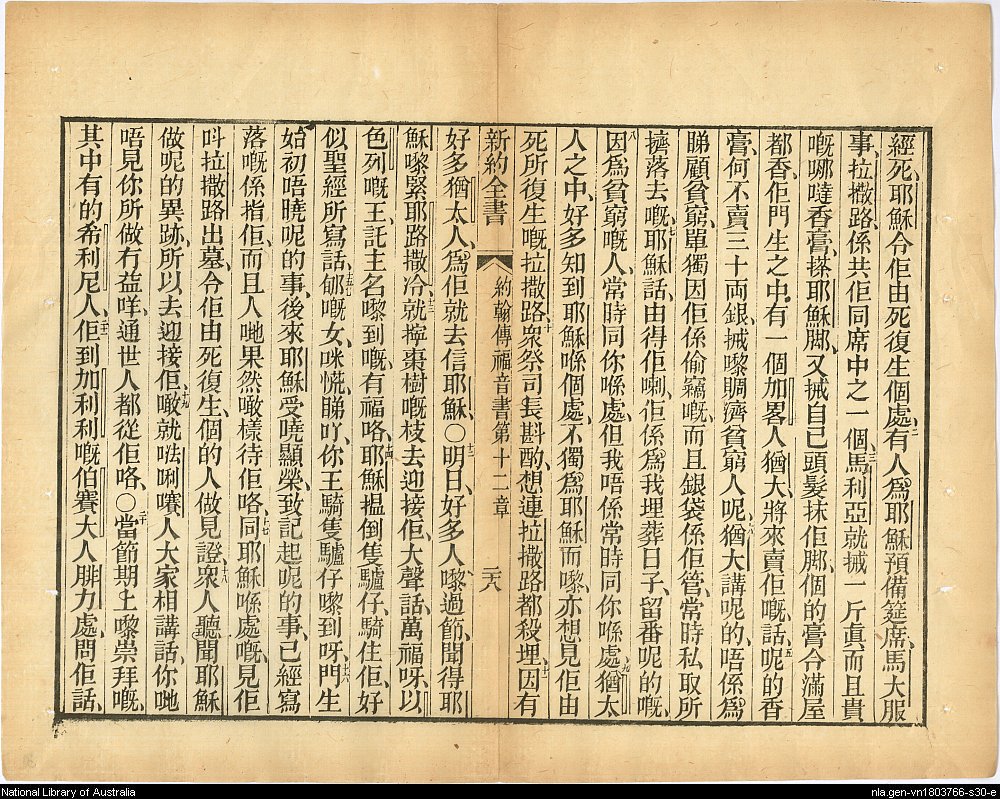 經死、耶穌令佢由死復生個處、二有人爲耶穌預備筵席、馬大服
事、拉撒路、係共佢同席中之一個、三馬利亞就搣一斤眞而且貴
嘅哪噠香膏、搽耶穌脚、又搣自己頭髮抹佢脚、個的膏令滿屋
都香、四佢門生之中、有一個加畧人猶大、將來賣佢嘅、話、五呢的香
膏、何不賣三十両銀、搣嚟賙濟貧窮人呢、六猶大講呢的、唔係爲
睇顧貧窮、單獨因佢係偷竊嘅、而且銀袋係佢管、常時私取所
擠落去嘅、七耶穌話、由得佢喇、佢係爲我埋葬日子、留番呢的嘅、
八因爲貧窮嘅人、常時同你喺處、但我唔係常時同你喺處、九猶太
人之中、好多知到耶穌喺個處、不獨爲耶穌而嚟、亦想見佢由
死所復生嘅拉撒路、十衆祭司長斟酌、想連拉撒路都殺埋、十一因有
新約全書
約翰傳福音書第十二章
二六
好多猶太人、爲佢就去信耶穌、〇十二明日、好多人嚟過節、聞得耶
穌嚟緊耶路撒冷、十三就擰棗樹嘅枝去迎接佢、大聲話、萬福呀、以
色列嘅王、託主名嚟到嘅有福咯、十四耶穌搵倒隻驢仔、騎住佢、好
似聖經所寫話、十五郇嘅女、咪慌、睇吓、你王騎隻驢仔嚟到呀、十六門生
始初唔曉呢的事、後來耶穌受曉顯榮、致記起呢的事、已經寫
落嘅係指佢、而且人哋果然噉樣待佢咯、十七同耶穌喺處嘅、見佢
呌拉撒路出墓、令佢由死復生、個的人做見證、十八衆人聽聞耶穌
做呢的異跡、所以去迎接佢、十九噉就㕦唎㘔人大家相講話、你哋
唔見你所做冇益咩、通世人都從佢咯、〇二十當節期上嚟崇拜嘅、
其中有的希利尼人、二十一佢到加利利嘅伯賽大人腓力處、問佢話、
National Library of Australia
nla.gen-vn1803766-s30-e